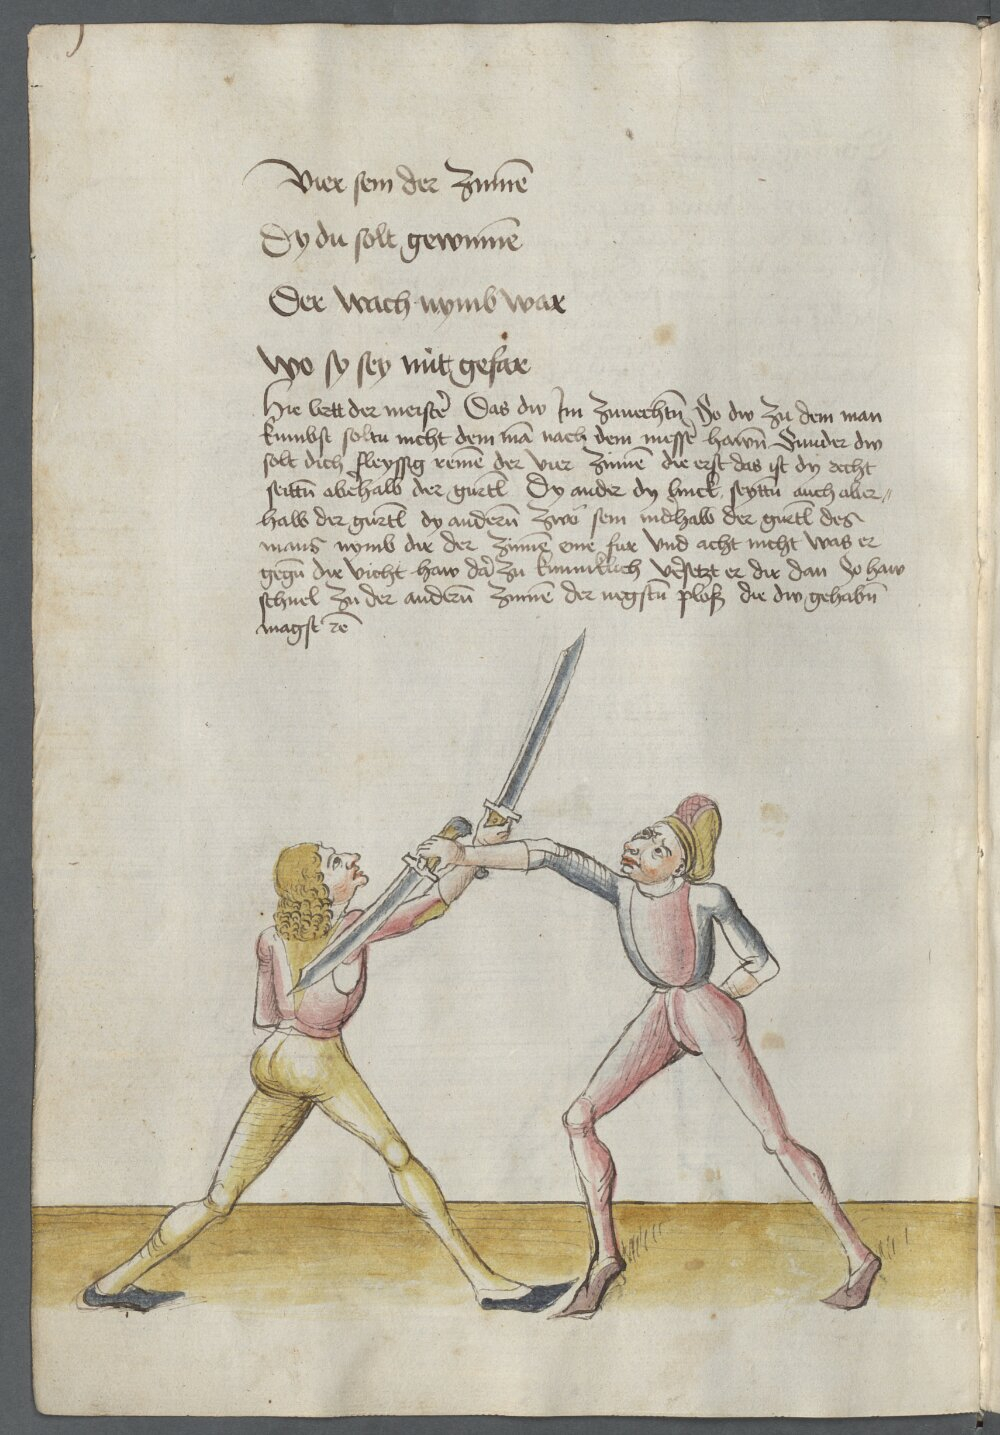 Vier sein der Zinnē
Dy du solt gewinnē
Der wach nymb war
Wo sy sey mit gefar
Hie lertt der meister Das dw Im Zuuechtn̄ So dw zu dem man
kumbst soltu nicht dem mā nach dem messer hawn̄ Sunder dw
solt dich fleyssig remē der vier Zinnē die erst das ist dy recht
seittn̄ oberhalb der gurtl Dy ander dy linck seyttn̄ auch ober-
halb der gurtl dy andern̄ zwo sein indhalb der gurtl des
mans nymb dir der Zinnē eine fur vnd acht nicht was er
gegn̄ dir vicht haw dar zu kunnlich Versetzt er dir dan So haw
schnel zu der andern̄ Zinnē der negstn̄ plosz die dw gehabn̄
magst rē